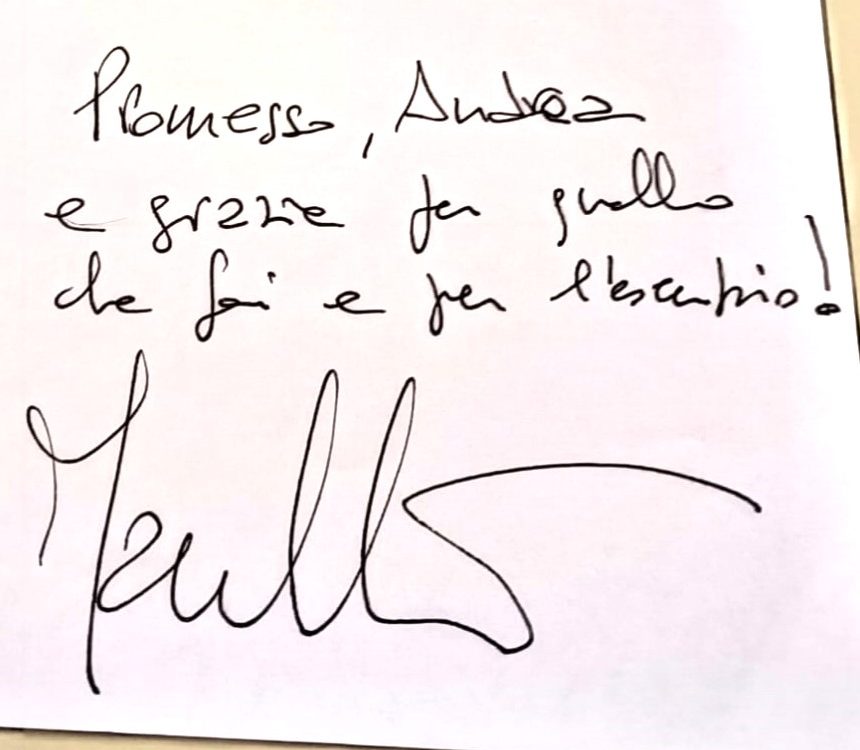 Promesso, Andrea
e grazie per quello
che fai e per l'esempio!